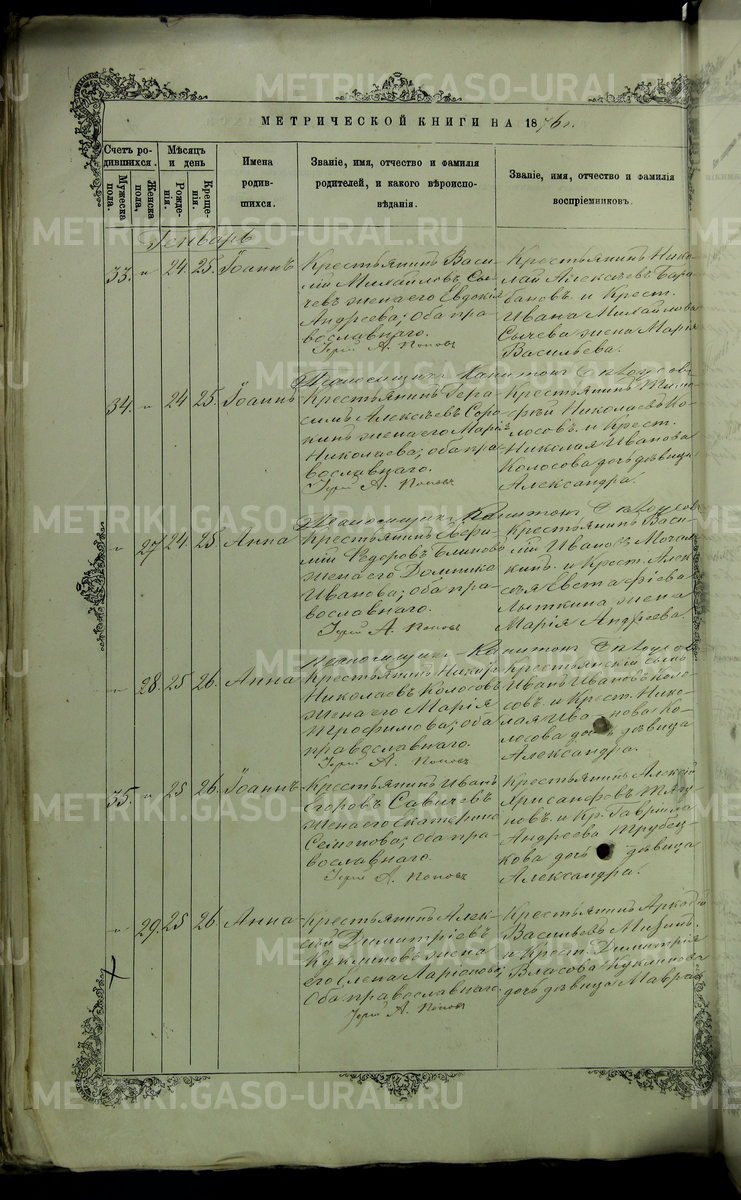 METRIKI.GASO-URAL.RU
МЕТРИЧЕСКОЙ КНИГИ НА 1876 г.
Счетъ родившихся.
Мужеска пола.
Женска пола.
Мѣсяцъ и день
Рожденія.
Крещенія.
Имена родившихся.
Званіе, имя, отчество и фамилія родителей, и какого вѣроисповѣданія.
Званіе, имя, отчество и фамилія воспріемниковъ.
Генварь
33. „ 24 25. Іоаннъ
Крестьянинъ Васи-
лій Михайловъ Сы-
чевъ жена его Евдокія
Андреева; оба пра-
вославнаго.
Іерей А. Поповъ
Крестьянинъ Нико-
лай Алексѣевъ Бара-
бановъ и Крест.
Ивана Михайлова
Сычева жена Марія
Васильева.
34. „ 24 25. Іоаннъ
Крестьянинъ Гера-
симъ Алексѣевъ Соро-
кинъ жена его Марія
Николаева; оба пра-
вославнаго.
Іерей А. Поповъ
Крестьянинъ Тимо-
фѣй Николаевъ Ко-
лосовъ и Крест.
Николая Иванова
Колосова дочь дѣвица
Александра.
„ 27 24 25 Анна
Крестьянинъ
Ѳедоровъ
жена его Домника
Иванова; оба пра-
вославнаго.
Іерей А. Поповъ
Крестьянинъ Васи-
лій Ивановъ
и Крест. Алек-
сѣя Евстафіева
Лыткина жена
Марія Андреева.
„ 28. 25 26. Анна
Крестьянинъ
Николаевъ Колосовъ
жена его Марія
Трофимова; оба
православнаго.
Іерей А. Поповъ
Крестьянскій сынъ
Иванъ Ивановъ Коло-
совъ и Крест. Нико-
лая Иванова Ко-
лосова дочь дѣвица
Александра.
35. „ 25 26. Іоаннъ
Крестьянинъ Иванъ
Егоровъ Савичевъ
жена его Екатерина
Семенова; оба пра-
вославнаго.
Іерей А. Поповъ
Крестьянинъ Алексѣй
Хрисанфовъ
и Кр. Гавріила
Андреева Трубец-
кова дочь дѣвица
Александра.
„ 29. 25 26. Анна
Крестьянинъ Алек-
сѣй Димитріевъ
Куклиновъ жена
его Елена Ларіонова;
Оба православнаго.
Іерей А. Поповъ
Крестьянинъ Аркадій
Васильевъ
и Крест. Димитрія
Власова Куклинова
дочь дѣвица Мавра.